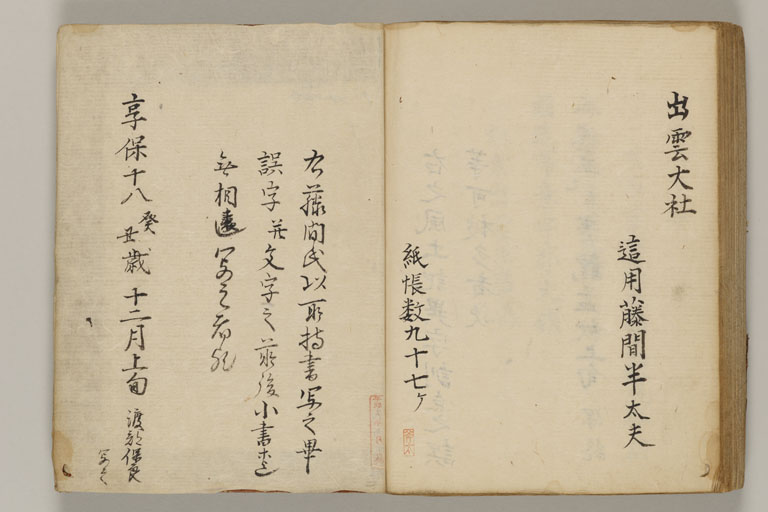 出雲大社
這用藤間半太夫
紙帳数九十七ケ
右藤間氏以所持書写之畢
誤字並文字之前後小書迄
無相違写之者也
享保十八癸丑歳十二月上旬
渡部保
写之